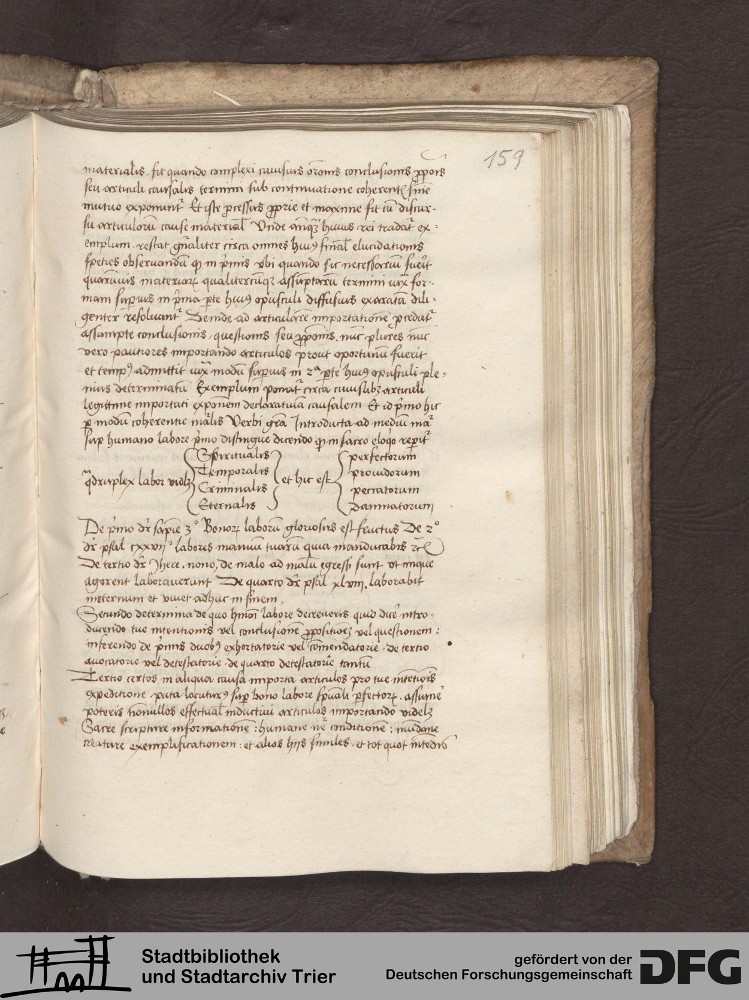 159
materialis. fit quando complexi cuiusuis oracionis conclusionis ꝓpositionis
seu articuli causalis termini sub continuatione coherenti siue
mutuo exponuntur Et iste processus ꝓprie et maxime fit cum discur-
su articulorum cause materialis Unde antequam huius rei tradatur ex-
emplum. restat generaliter circa omnes huius finalis elucidationis
species obseruandum ꝙ in primis ubi quando sic necessarium fuerit
quarumuis materiarum qualitercumque assumptarum termini iuxta for-
mam superius in prima parte huius opusculi diffusius exaratam dili-
genter resoluantur Deinde ad articulorum importationem procedatur
assumpte conclusionis, questionis seu ꝓpositionis, nunc plures nunc
vero pauciores importando articulos prout oportunum fuerit
et tempus admittit iuxta modum superius in 2ª parte huius opusculi ple-
nius determinatum Exemplum ponatur circa cuiuslibet articuli
legittime importati expositionem declaratiuam causalem Et id primo hic
per modum coherentie materialis Verbi gratia Introducta ad medium materia
super humano labore primo distingue dicendo ꝙ in sacro eloquio reperitur
quadruplex labor videlicet
Spiritualis
Temporalis
Criminalis
Eternalis
et hic est
perfectorum
prouidorum
peccatorum
damnatorum
De primo dicitur sapientie 3° Bonorum laborum gloriosus est fructus De 2°
dicitur psal cxxvii° labores manuum tuarum quia manducabis etc
De tertio dicitur Jhere. nono, de malo ad malum egressi sunt ut inique
agerent laborauerunt De quarto dicitur psal xlviii. laborabit
ineternum et viuet adhuc in finem.
Secundo determina de quo huiusmodi labore decreueris quid dicere intro-
ducendo tue intentionis vel conclusionem ꝓpositionem vel questionem:
inferendo de primis duobus exhortatorie vel comendatorie. de tertio
auocatorie vel detestatorie. de quarto detestatorie tantum
Tertio certos in aliqua causa importa articulos pro tue intentionis
expeditione. puta locuturus super bono labore spirituali perfectorum. assumere
poteris nonnullos effectualiter inductiui articulos importando videlicet
Sacre scripture informationem: humane nature conditionem: mundane
creature exemplificationem: et alios hiis similes. et tot quot intendis
Stadtbibliothek
und Stadtarchiv Trier
gefördert von der
Deutschen Forschungsgemeinschaft
DFG